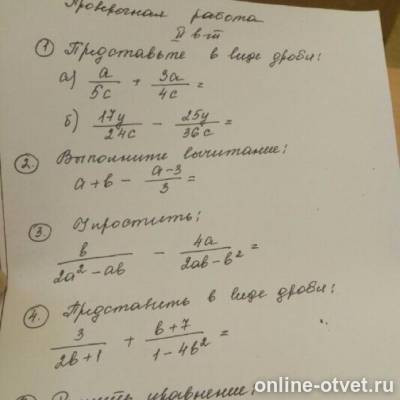 Проверочная работа
II в-т
① Представьте в виде дроби:
а) a/5c + 3a/4c =
б) 17y/24c - 25y/36c =
②. Выполните вычитание:
a+b - a-3/3 =
③. Упростить:
b/2a²-ab - 4a/2ab-b² =
④. Представить в виде дроби:
3/2b+1 + b+7/1-4b² =
уравнение:
online-otvet.ru